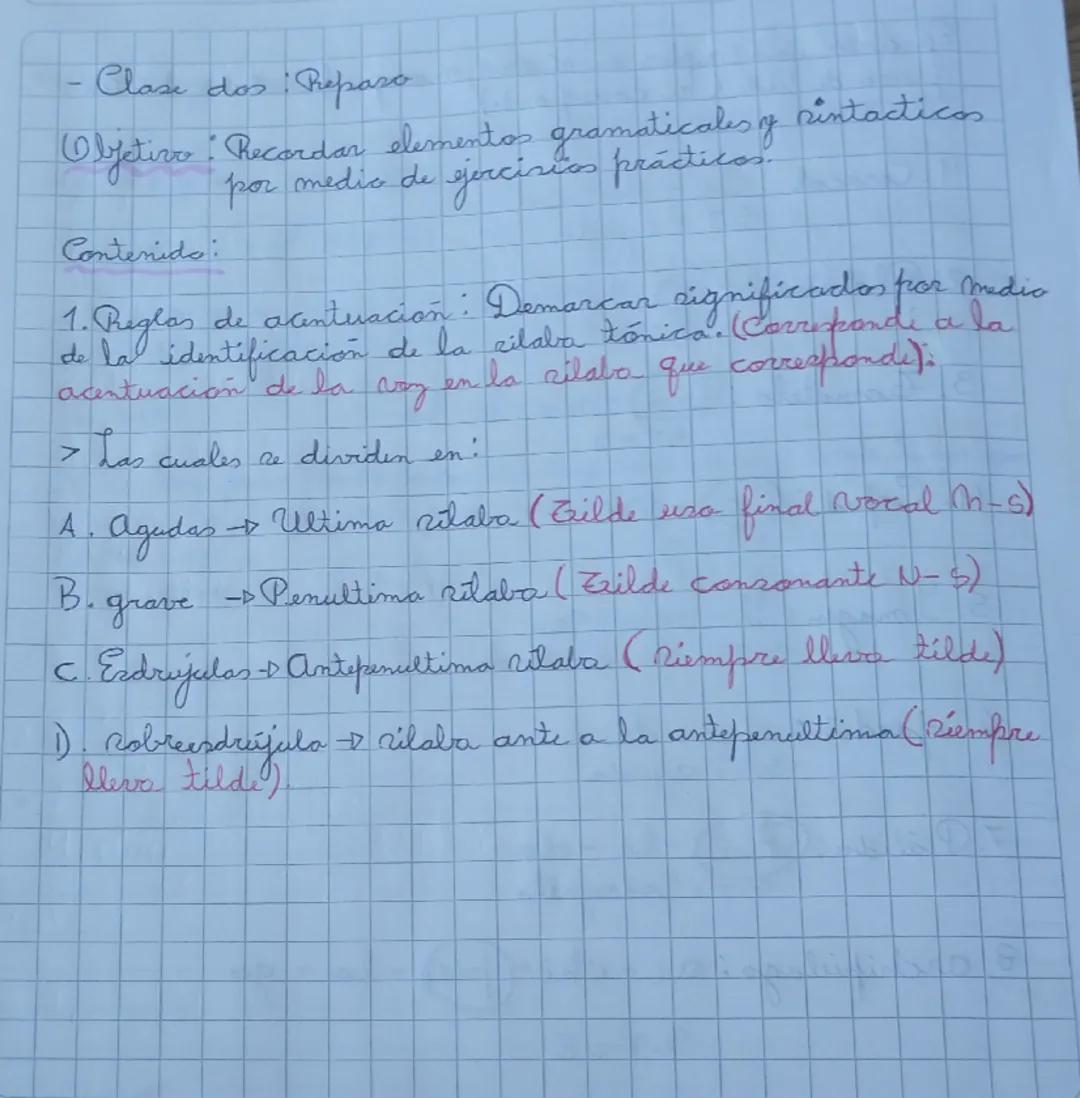 - Clase dos : Repaso
Objetivo : Recordar elementos gramaticales y sintacticos
por medio de ejercisios prácticos.
Contenido :
1. Reglas de acentuación : Demarcar significados por medio
de la identificación de la silaba tónica. (Corresponde a la
acentuación de la voz en la silaba que corresponde).
> Las cuales se dividen en :
A. Agudas → Ultima silaba (Tilde usa final vocal N-S)
B. grave → Penultima silaba (Tilde consonante N-S)
C. Esdrujulas → Antepenultima silaba (siempre lleva tilde)
D. sobreesdrújula → silaba ante a la antepenultima (siempre
lleva tilde).